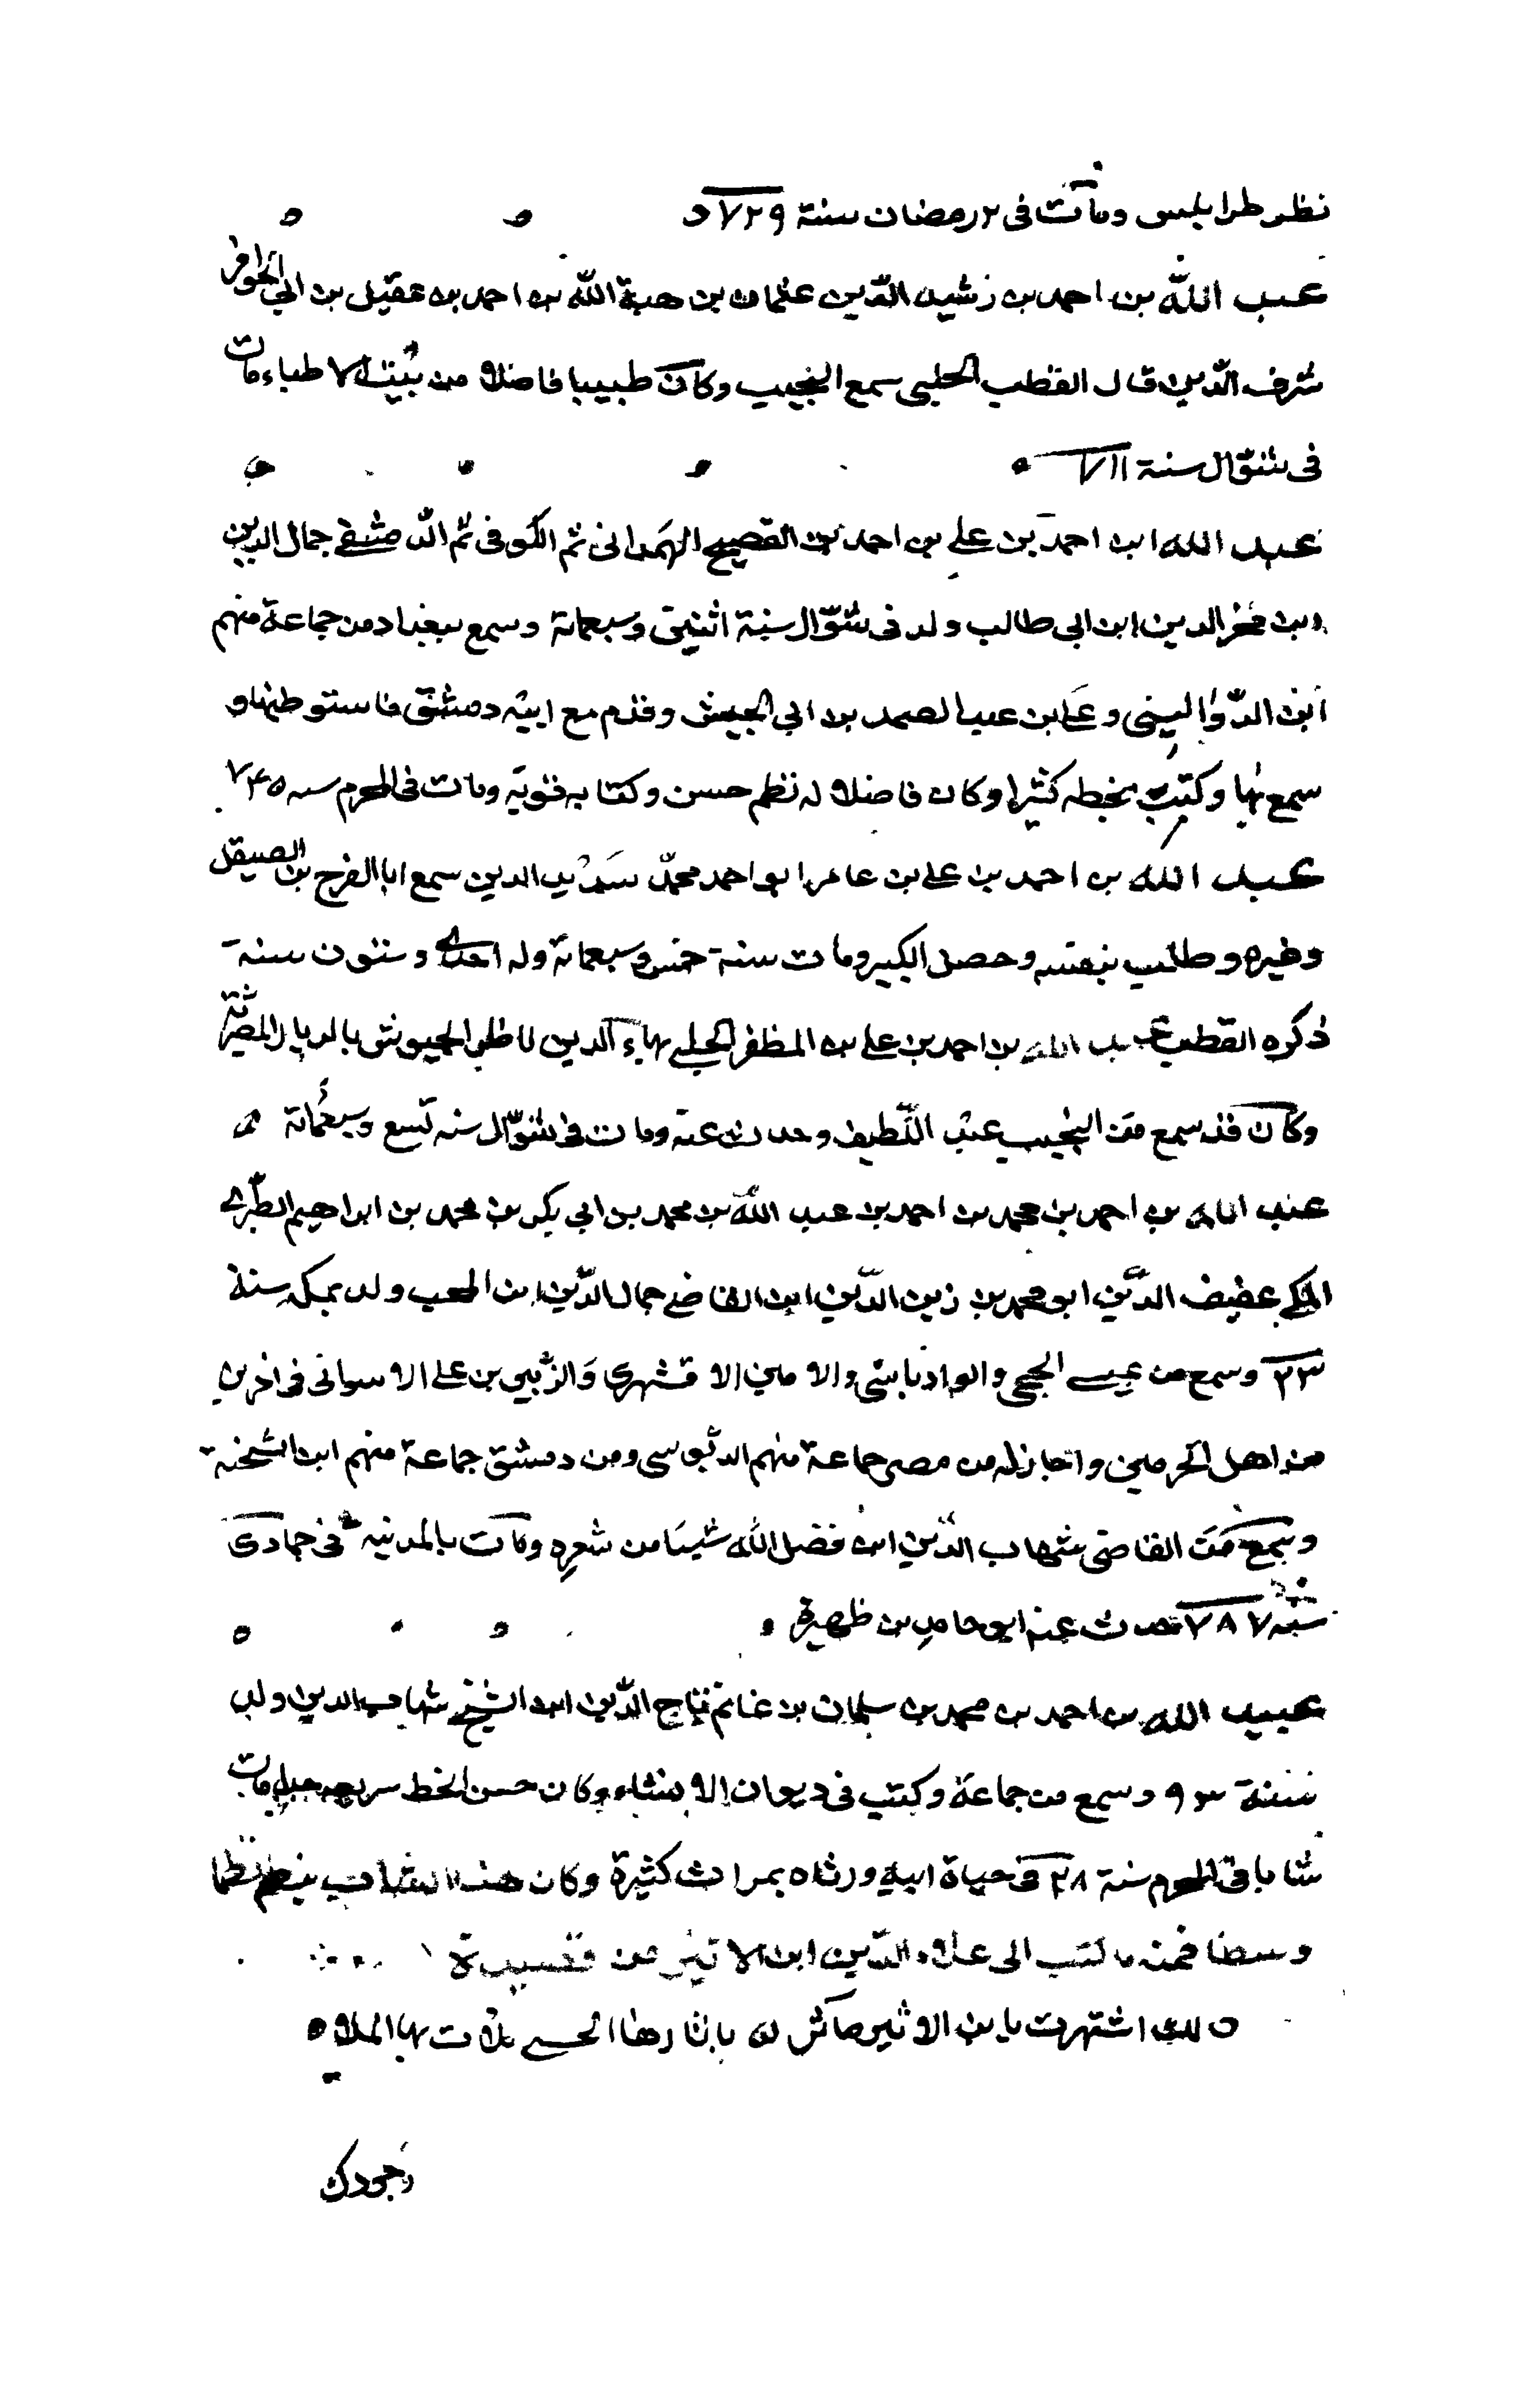 نظر طرابلس ومات فى ٢ رمضان سنة ٧٢٩
عبد الله بن احمد بن رشيد الدّين عثمان بن هبة الله بن احمد بن عقيل بن ابي الحوافر
شرف الدّين قال القطب الحلبى سمع النجيب وكان طبيبا فاضلا من بيت الاطباء مات
فى شوّال سنة ٧١١
عبد الله ابن احمد بن على بن احمد بن الفصيح الهمدانى ثم الكوفى ثم الدّمشقى جمال الدين
ابن فخر الدين ابن ابى طالب ولد فى شوّال سنة اثنين وسبعمائة وسمع ببغداد من جماعة منهم
ابن الدّواليبى وعلى بن عبد الصمد بن ابي الجيش وقدم مع ابيه دمشق فاستوطنها و
سمع بها وكتب بخطه كثيرا وكان فاضلا له نظم حسن وكتابه قويّه ومات فى المحرم سنه ٧٤٥
عبد الله بن احمد بن على بن عامر ابو احمد محمّد سديد الدين سمع ابا الفرج بن الصيقل
وغيره وطلب بنفسه وحصل الكبير ومات سنة خمس وسبعمائة وله احدى وستون سنة
ذكره القطب عبد الله بن احمد بن على بن المظفر الحلى بهاء الدين ناظر الجيوش بالديار المصرية
وكان قد سمع من النجيب عبد اللّطيف وحدث عنه ومات فى شوّال سنه تسع وسبعمائة
عبد الله بن احمد بن محمد بن احمد بن عبد الله بن محمد بن ابي بكر بن محمد بن ابراهيم الطّبرى
المكى عفيف الدّين ابو محمد بن زين الدّين ابن القاضى جمال الدّين ابن المحب ولد بمكه سنة
٢٣ وسمع من عيسى الحجى والوادياشى والامين الاقشهرى والزّبير بن على الاسوانى فى اخرين
من اهل الحرمين واجاز له من مصر جماعة منهم الدبوسى ومن دمشق جماعة منهم ابن الشحنة
وسمع من القاضى شهاب الدّين ابن فضل الله شيئا من شعره ومات بالمدنيه فى جمادى
سنه ٧٨٧ حدث عنه ابو حامد بن ظهيرة
عبد الله بن احمد بن محمد بن سلمان بن غانم تاج الدّين ابن الشيخ شهاب الدين ولد
سنة ٩٣ وسمع من جماعة وكتب فى ديوان الانشاء وكان حسن الخط سريعه مات
شابا فى المحرم سنة ٢٨ فى حياة ابيه ورثاه بمراث كثيرة وكان ينظم نظما
وسطا فمنه ما كتب الى علاء الدّين ابن الاثير من قصيدة
اشتهرت يا بن الاثير مآثر الملا
وجودك